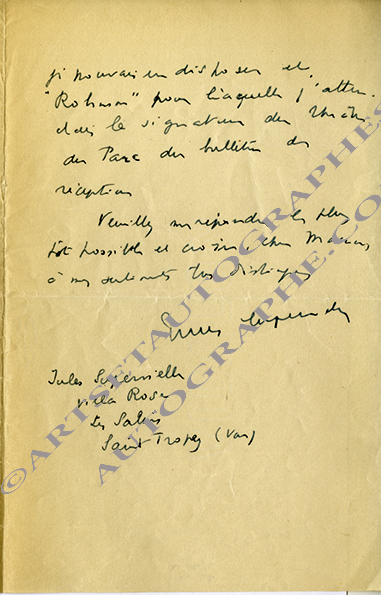 je pourrai en disposer et
"Robinson" pour laquelle j'atten-
dais la signature du Théâtre
du Parc du bulletin de
réception
Veuillez me répondre le plus
tôt possible et croire, cher Monsieur
à mes sentiments très distingués
Jules Supervielle
Jules Supervielle
Villa Rose
Les Salins
Saint Tropez (Var)
©ARTSETAUTOGRAPHES
AUTOGRAPHE.CO